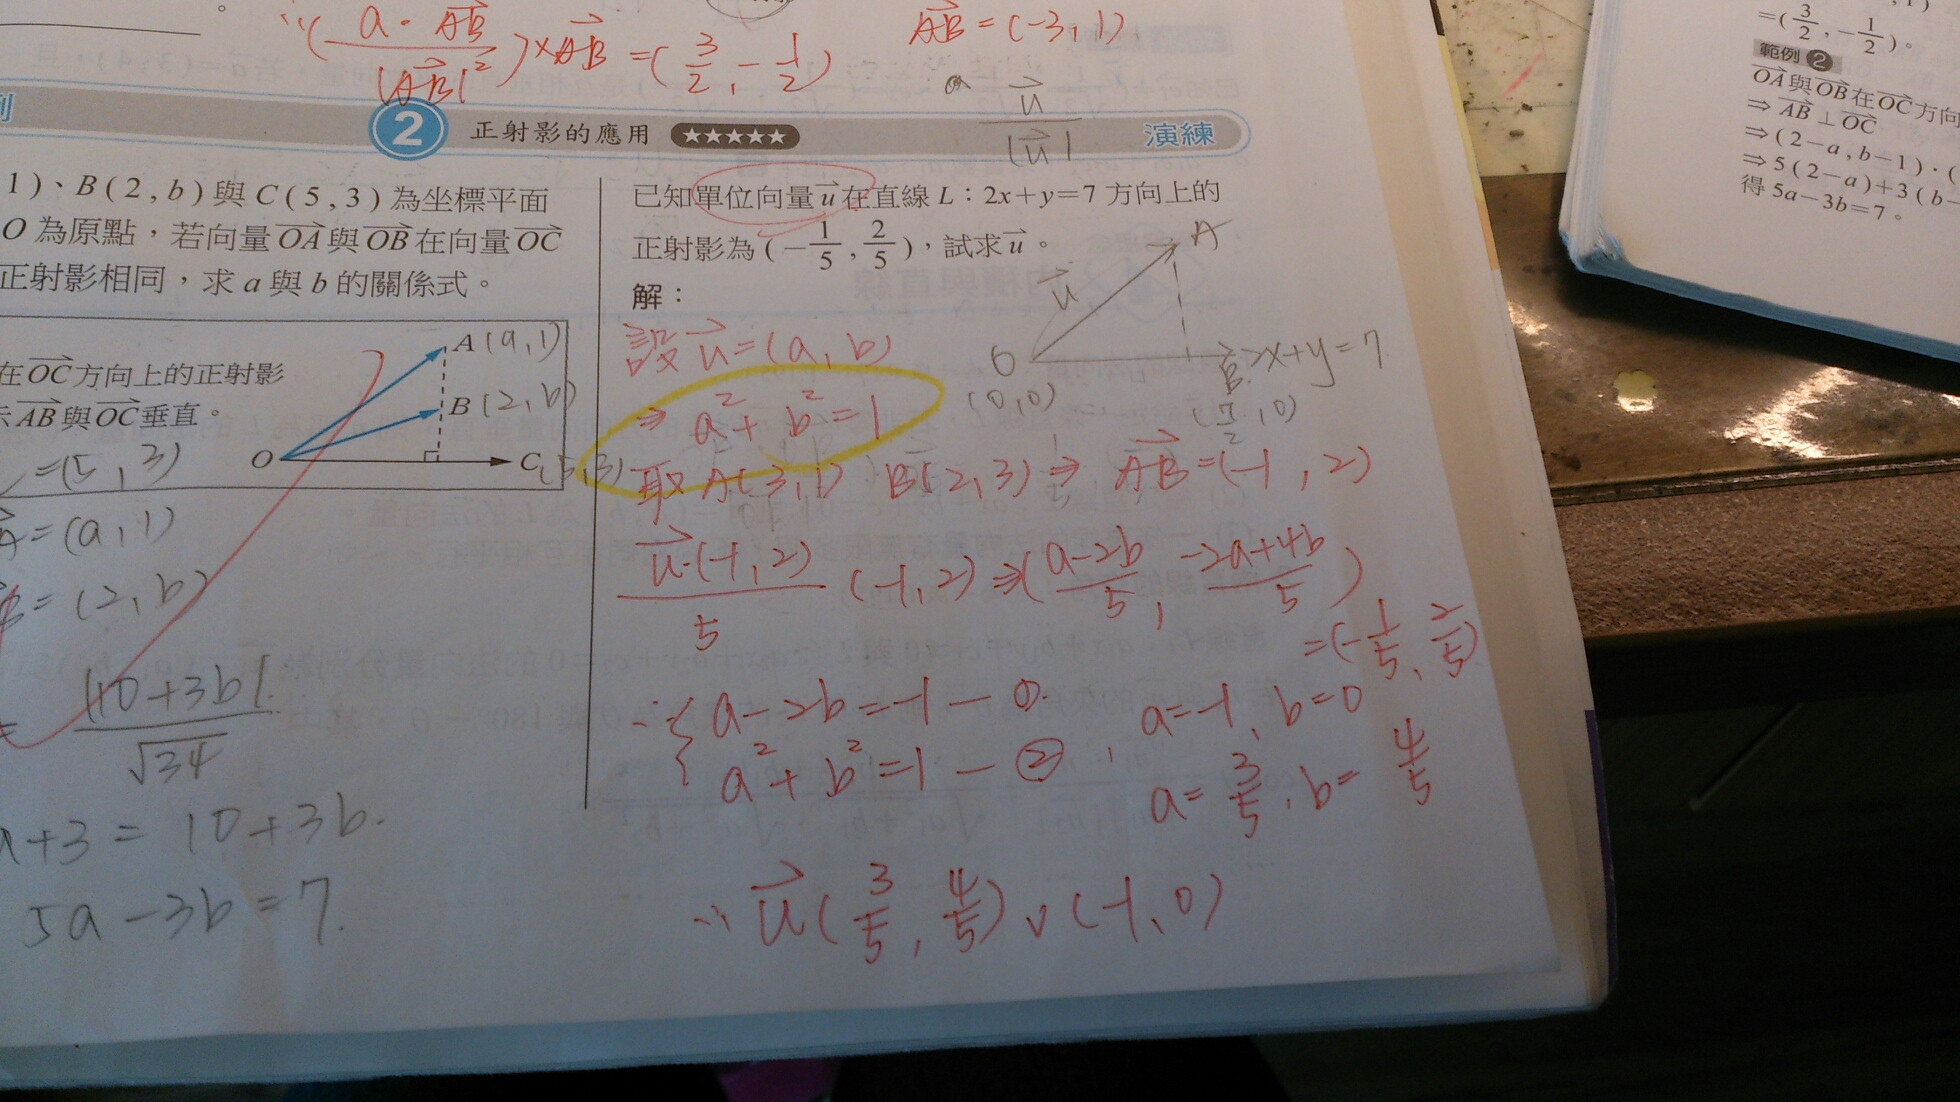 ∴(a·AB/|AB|²)×AB=(3/2,-1/2)
AB=(-3,1)
u/|u|
例
2 正射影的應用 ★★★★★ 演練
1)、B(2,b)與C(5,3)為坐標平面
O為原點,若向量OA與OB在向量OC
正射影相同,求a與b的關係式。
在OC方向上的正射影
示AB與OC垂直。
A(a,1)
B(2,b)
O
C(5,3)
=(5,3)
A=(a,1)
=(2,b)
= |10+3b|/√34
a+3=10+3b.
5a-3b=7.
已知單位向量u在直線L:2x+y=7方向上的
正射影為(-1/5,2/5),試求u。
解:
A
u
O
(0,0)
B
2x+y=7
(7/2,0)
設u=(a,b)
⇒a²+b²=1
取A(3,1) B(2,3)⇒AB=(-1,2)
u·(-1,2)/5 (-1,2)⇒(a-2b/5,-2a+4b/5)
=(-1/5,2/5)
∴{a-2b=-1-①.
a²+b²=1-②,
a=-1,b=0
a=3/5,b=4/5
∴u(3/5,4/5)∨(-1,0)
=(3/2,-1/2)。
範例2
OA與OB在OC方向
⇒AB⊥OC
⇒(2-a,b-1)·(
⇒5(2-a)+3(b-
得5a-3b=7。